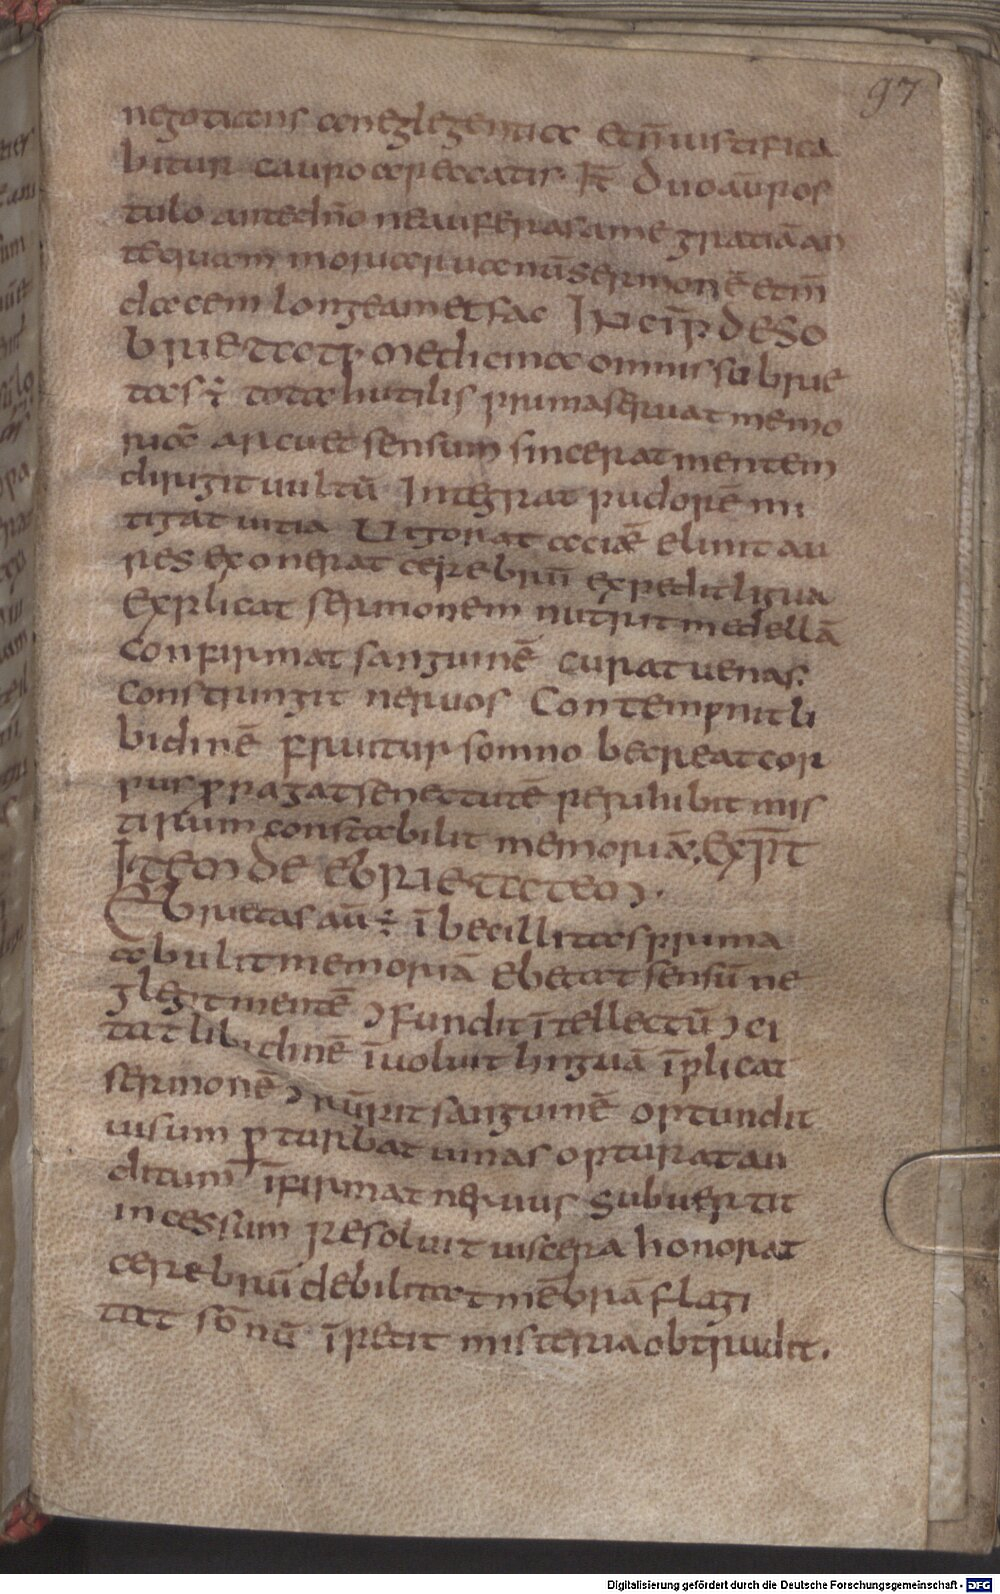 97
negotians a neglegentia et n̄ iustifica
bitur caupo a peccatis k̄t Duo aū pos
tulo ante dn̄o ne auferas a me gratiā an
tequam moriar uanū sermonē et m̄
dacem longe a me fac Incip̄ de so
brietat̄ Medicina omnis su brie
tas ÷ tota hutilis prima seruat memo
riā ar cuet sensum sincerat mentem
dirigit uultū Integrat pudorē mi
tigat uitia Uigorat aciæ elinit au
res exonerat cerebrū expedit ligua
explicat sermonem nutrit medellā
Confirmat sanguinē curat uenas
Constringit neruos Contempnit li
bidinē fruitur somno Recreat cor
pus ꝓpagat senectutē
tirium constabilit memoriæ. Exp̄lt
Item de ebrietatem.
Ebrietas aū ÷ ībecillitas prima
abulit memoriā ebetat sensū ne
glegit mentē ɔfundit ītellectū ɔci
tat libidinē īuoluit linguā īplicat
sermonē ɔrūpit sanguinē optundit
uisum ꝑturbat uinas opturat au
ditum īfirmat neruus subuertit
incessum resoluit uiscera honorat
cerebrū debilitat mēbriā flagi
tat sōnū īretit misteria obtrudit.
Digitalisierung gefördert durch die Deutsche Forschungsgemeinschaft - DFG